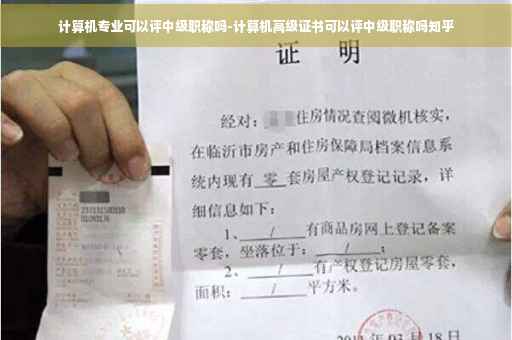 计算机专业可以评中级职称吗-计算机高级证书可以评中级职称吗知乎
证 明
经对: 住房情况查阅微机核实,
在临沂市房产和住房保障局档案信息系
统内现有 零 套房屋产权登记记录, 详
细信息如下:
1、 / 有商品房网上登记备案
零套, 坐落位于: / ;
2、 / 有产权登记房屋零套,
面积: / 平方米。
03 月 18 日